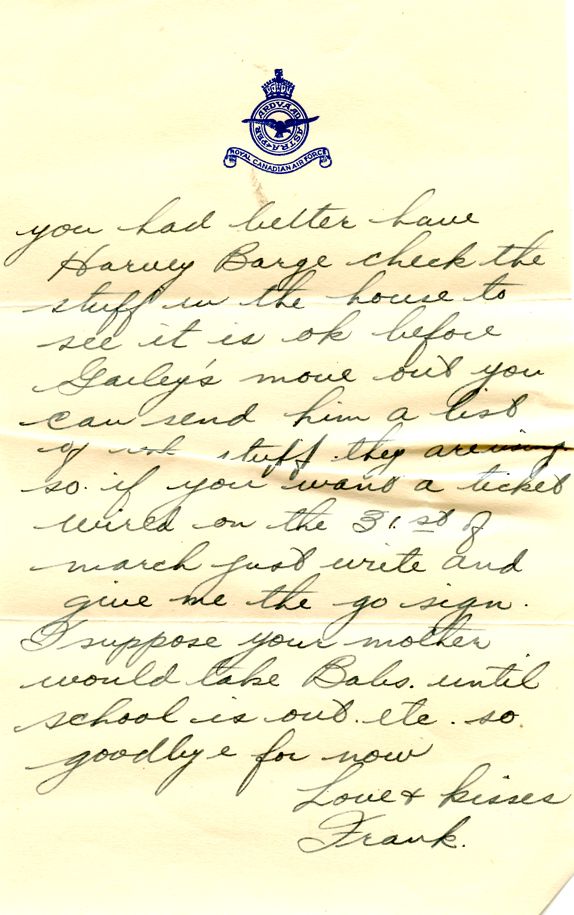 PER ARDVA AD ASTRA
ROYAL CANADIAN AIR FORCE
you had better have
Harvey Barge check the
stuff in the house to
see it is ok before
Gailey's move out you
can send him a list
of stuff they are using
so. if you want a ticket
wired on the 31.st of
march just write and
give me the go sign.
I suppose your mother
would take Babs. until
school is out. etc. so.
goodbye for now
Love & kisses
Frank.